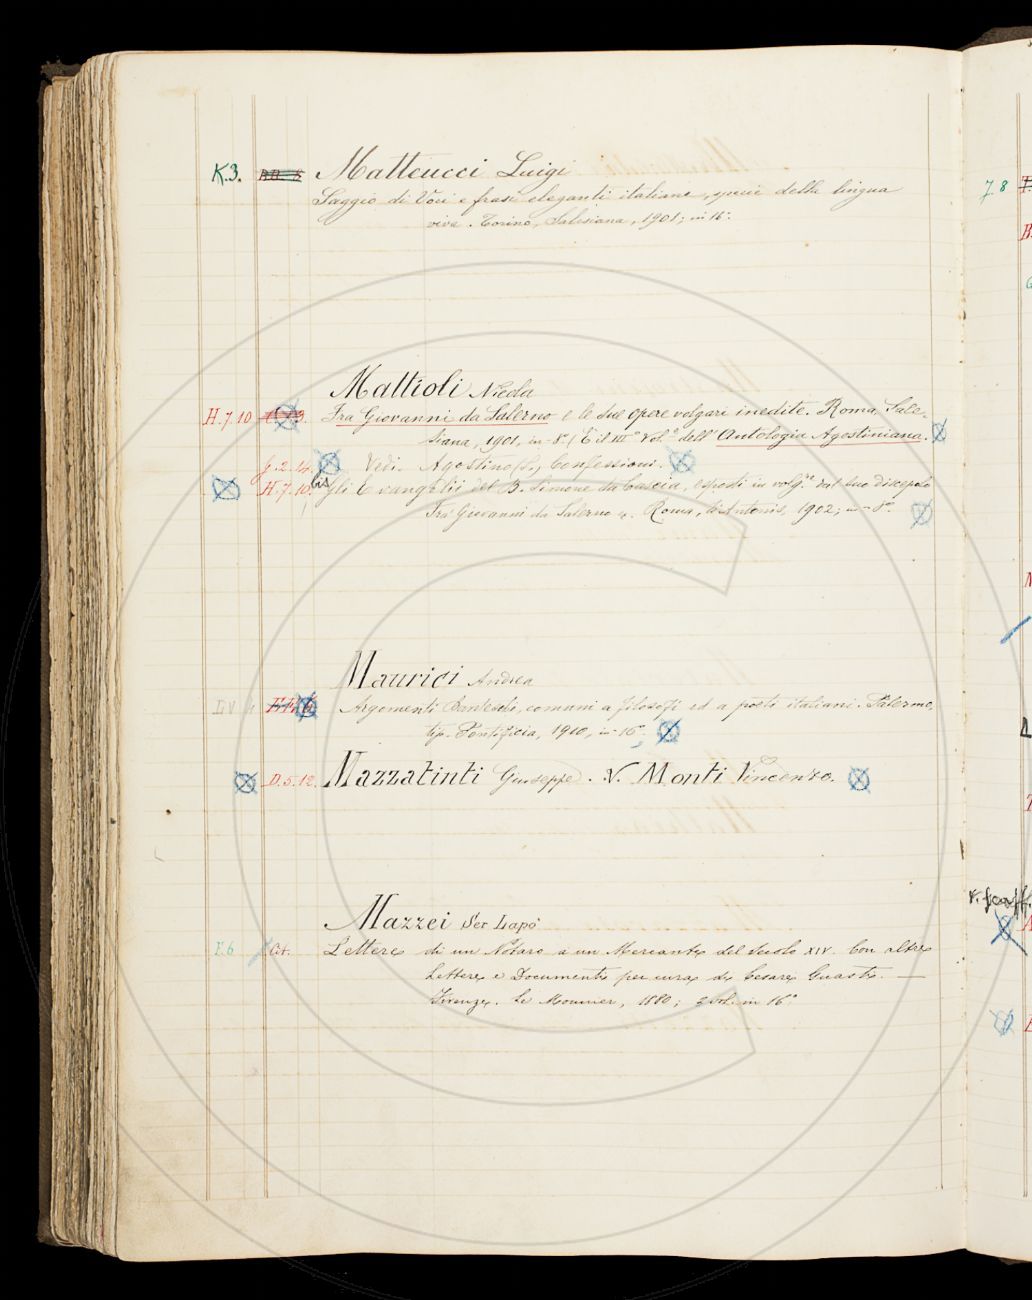 K.3. Matteucci Luigi
Saggio di Voci e frasi eleganti italiane, specie della lingua
viva. Torino, Salesiana, 1901; in 16°.
Mattioli Nicola
H.7.10 Fra Giovanni da Salerno e le sue opere volgari inedite. Roma, Sale-
siana, 1901, in-8° (È il III° Vol.° dell'Antologia Agostiniana.
J.2.14. Vedi. Agostino (S.) Confessioni.
H.7.10. bis Gli Evangelii del B. Simone da Cascia, esposti in volg.re dal suo discepolo
Fra Giovanni da Salerno Roma, 1902; in-8°.
Maurici Andrea
Argomenti Danteschi, comuni a filosofi ed a poeti italiani. Palermo,
tip. Pontificia, 1910, in-16°.
D.5.12. Mazzatinti Giuseppe. V. Monti Vincenzo.
Mazzei Ser Lapo
F.6 Lettere di un Notaro a un Mercante del Secolo XIV. Con altre
Lettere e Documenti per cura di Cesare Guasti.—
Firenze. Le Monnier, 1880; 2 vol. in 16°
7.8
V. Scaff.